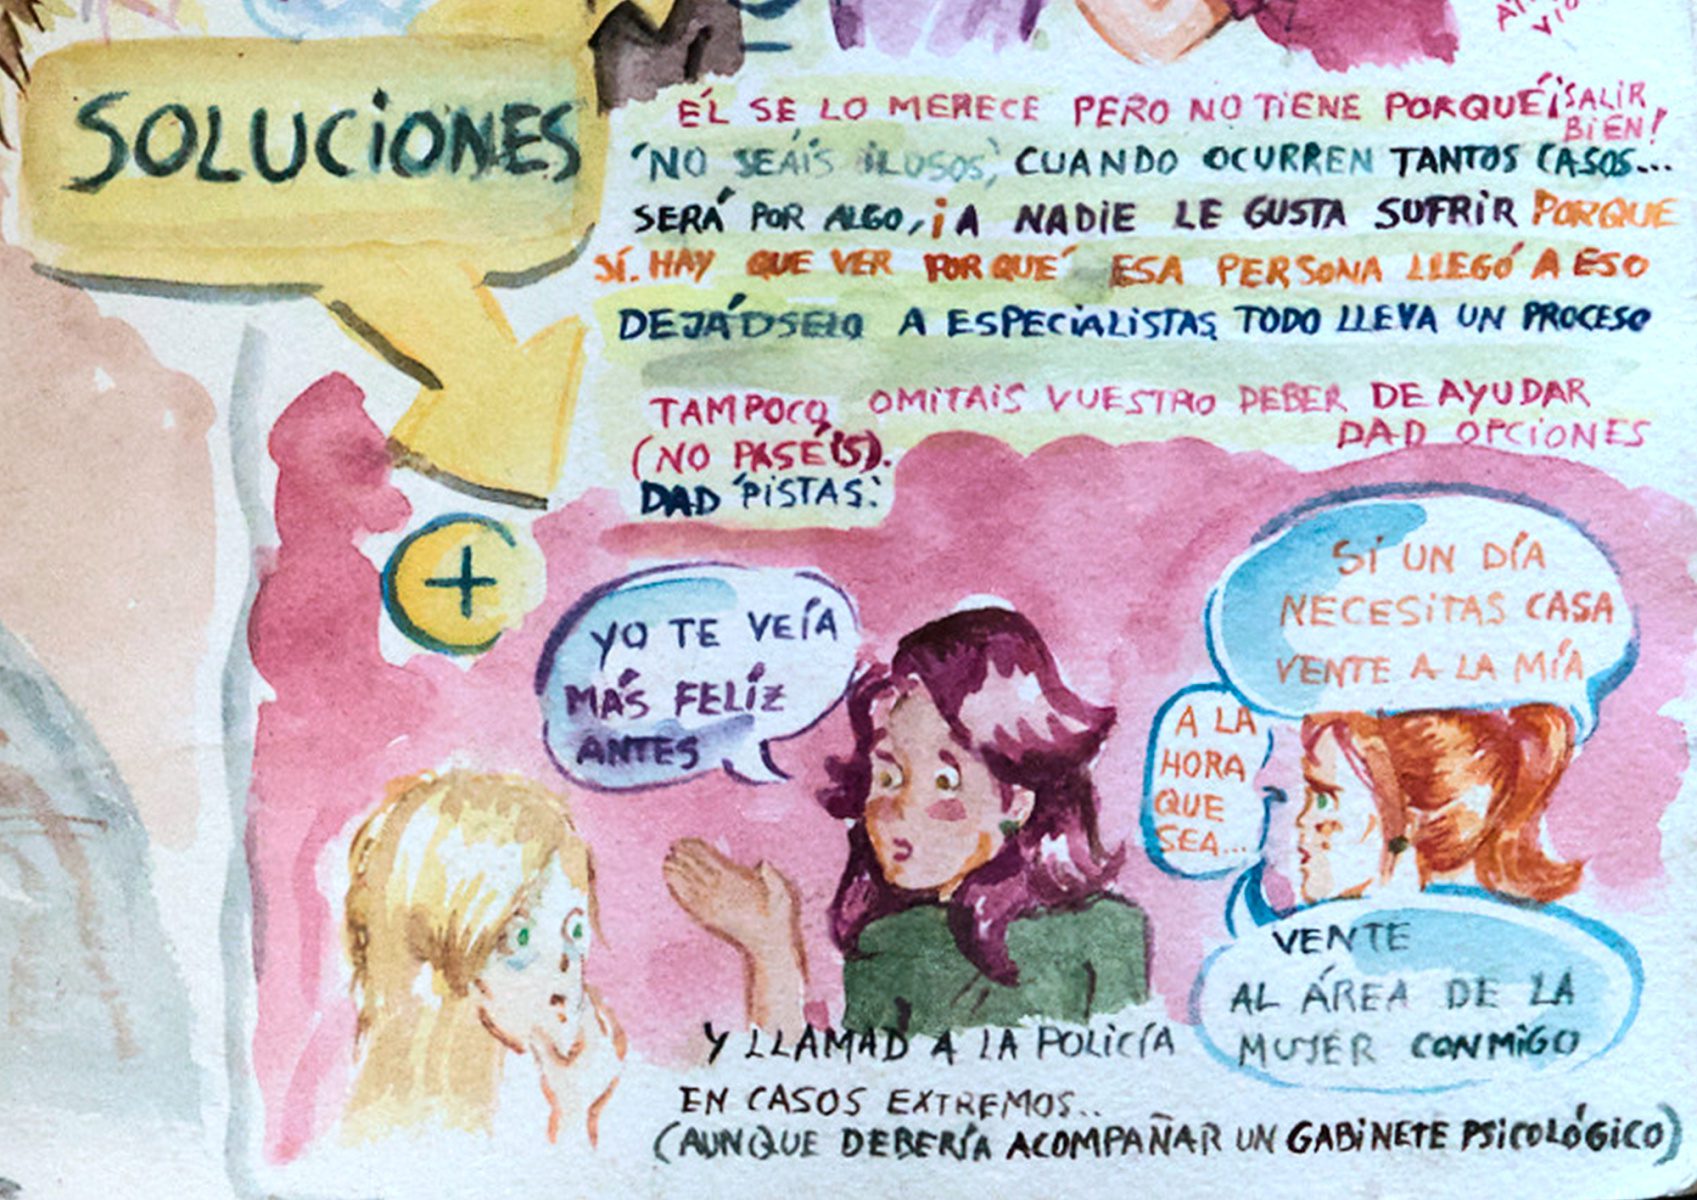 SOLUCIONES
ÉL SE LO MERECE PERO NO TIENE PORQUÉ ¡SALIR
BIEN!
'NO SEÁIS ILUSOS', CUANDO OCURREN TANTOS CASOS...
SERÁ POR ALGO, ¡A NADIE LE GUSTA SUFRIR PORQUE
SÍ. HAY QUE VER POR QUÉ ESA PERSONA LLEGÓ A ESO
DEJÁDSELO A ESPECIALISTAS, TODO LLEVA UN PROCESO
TAMPOCO, OMITAIS VUESTRO DEBER DE AYUDAR
(NO PASÉ(S). DAD OPCIONES
DAD 'PISTAS'.
+
YO TE VEÍA
MÁS FELÍZ
ANTES
SI UN DÍA
NECESITAS CASA
VENTE A LA MÍA
A LA
HORA
QUE
SEA...
VENTE
AL ÁREA DE LA
MUJER CONMIGO
Y LLAMAD A LA POLICÍA
EN CASOS EXTREMOS..
(AUNQUE DEBERÍA ACOMPAÑAR UN GABINETE PSICOLÓGICO)